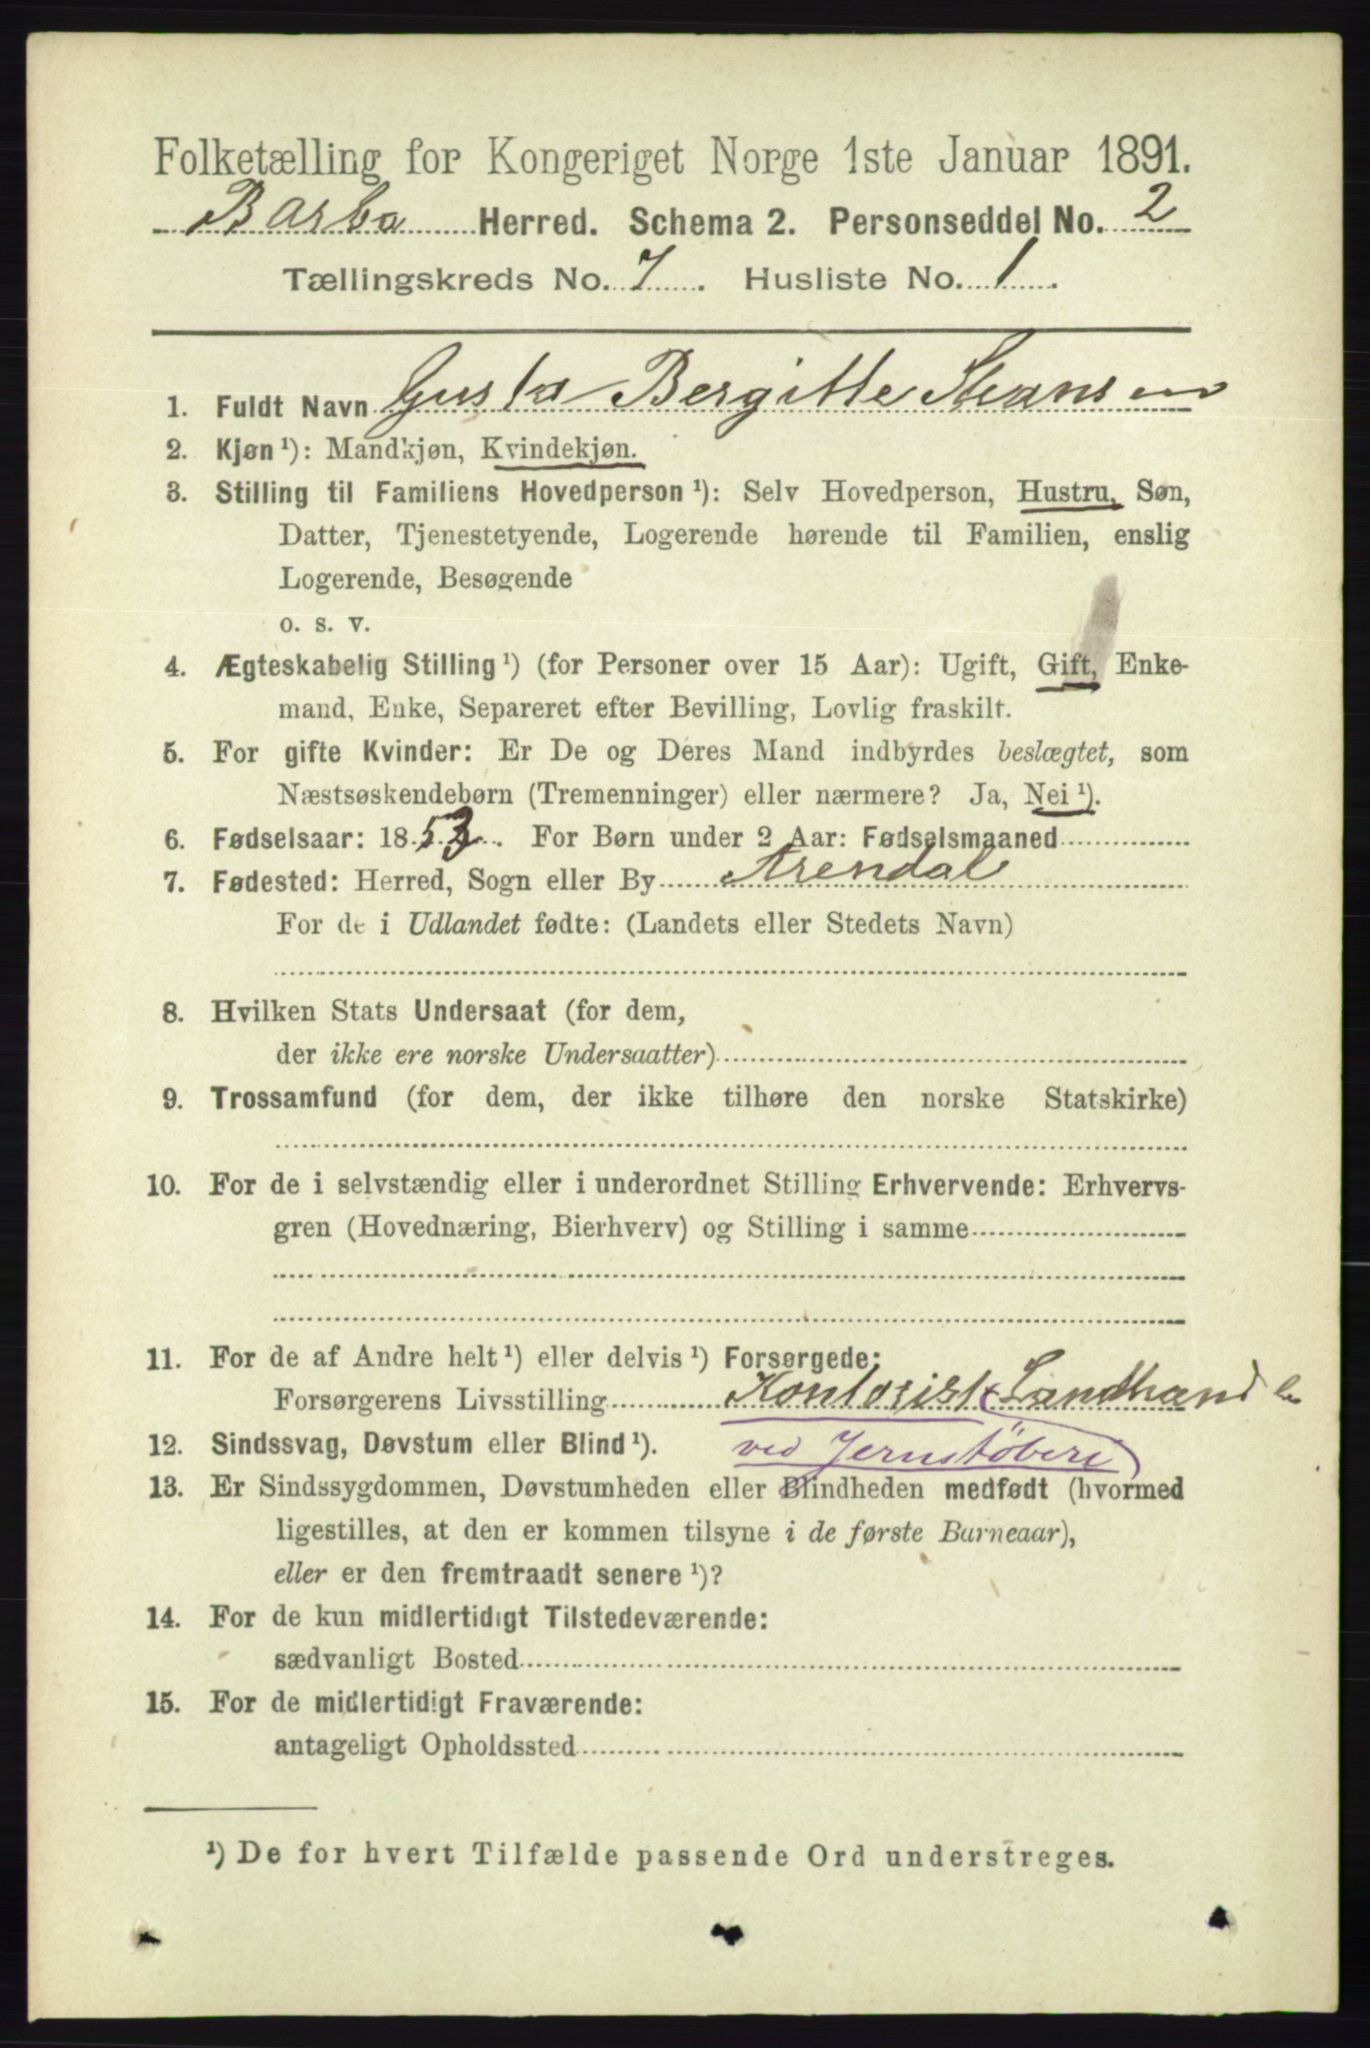 Folketælling for Kongeriget Norge 1ste Januar 1891.
Barbo Herred. Schema 2. Personseddel No. 2
Tællingskreds No. 7. Husliste No. 1.
1. Fuldt Navn Gusta Bergitte Hansen
2. Kjøn ¹): Mandkjøn, Kvindekjøn.
3. Stilling til Familiens Hovedperson ¹): Selv Hovedperson, Hustru, Søn,
Datter, Tjenestetyende, Logerende hørende til Familien, enslig
Logerende, Besøgende
o. s. v.
4. Ægteskabelig Stilling ¹) (for Personer over 15 Aar): Ugift, Gift, Enke-
mand, Enke, Separeret efter Bevilling, Lovlig fraskilt.
5. For gifte Kvinder: Er De og Deres Mand indbyrdes beslægtet, som
Næstsøskendebørn (Tremenninger) eller nærmere? Ja, Nei ¹).
6. Fødselsaar: 1853. For Børn under 2 Aar: Fødselsmaaned
7. Fødested: Herred, Sogn eller By Arendal
For de i Udlandet fødte: (Landets eller Stedets Navn)
8. Hvilken Stats Undersaat (for dem,
der ikke ere norske Undersaatter)
9. Trossamfund (for dem, der ikke tilhøre den norske Statskirke)
10. For de i selvstændig eller i underordnet Stilling Erhvervende: Erhvervs-
gren (Hovednæring, Bierhverv) og Stilling i samme
11. For de af Andre helt ¹) eller delvis ¹) Forsørgede:
Forsørgerens Livsstilling Kontorist Landhandler
12. Sindssvag, Døvstum eller Blind ¹). ved Jernstöberi
13. Er Sindssygdommen, Døvstumheden eller Blindheden medfødt (hvormed
ligestilles, at den er kommen tilsyne i de første Barneaar),
eller er den fremtraadt senere ¹)?
14. For de kun midlertidigt Tilstedeværende:
sædvanligt Bosted
15. For de midlertidigt Fraværende:
antageligt Opholdssted
¹) De for hvert Tilfælde passende Ord understreges.